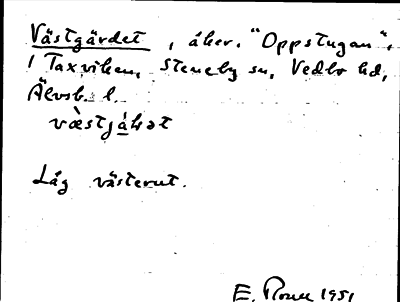 Västgärdet, åker. "Oppstugan",
i Taxviken, Steneby sn, Vedbo hd,
Älvsb. l.
væ̀stjá̱hət
Låg västerut.
E. 1951